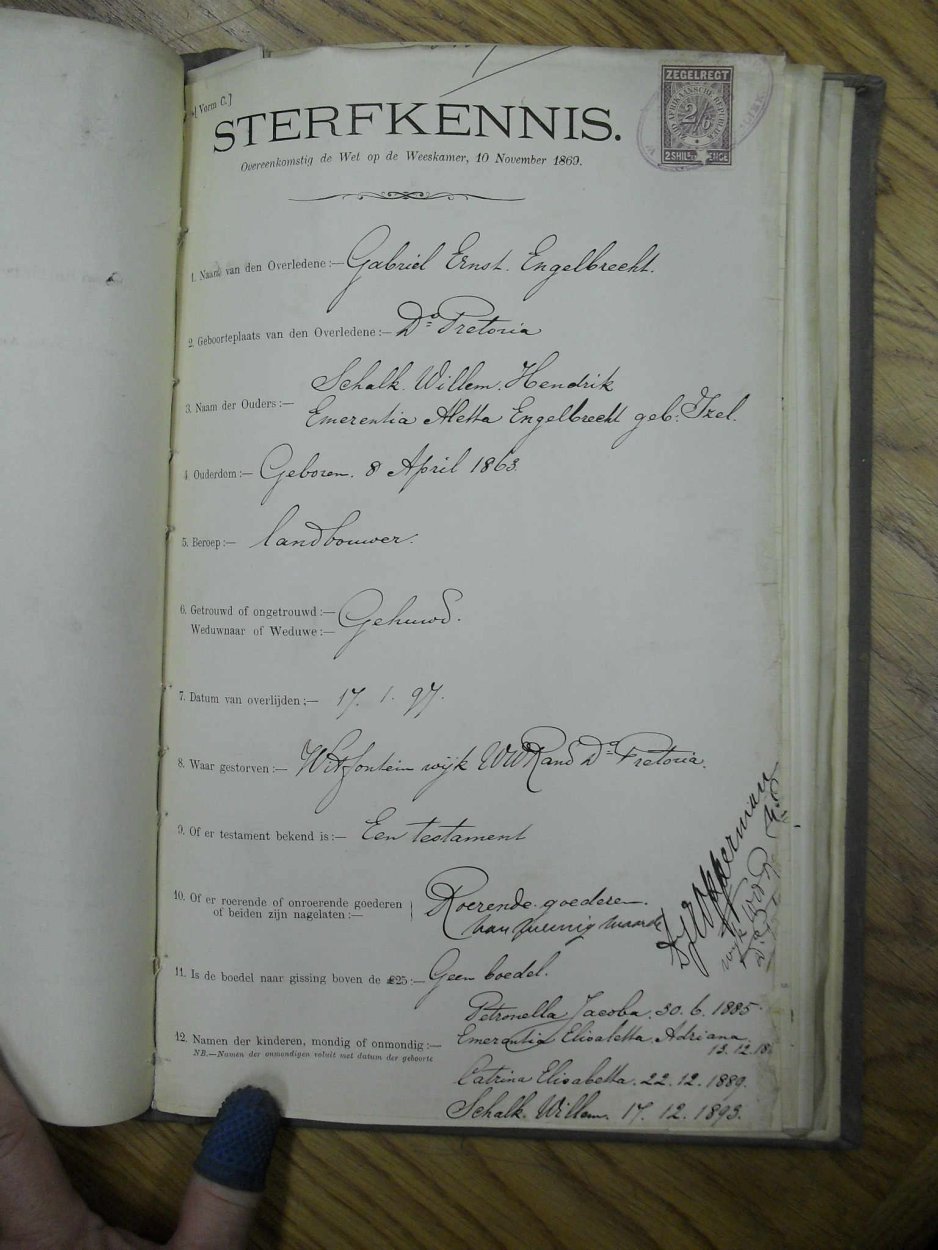 [Vorm C.]
ZEGELREGT
2 SHIL
STERFKENNIS.
Overeenkomstig de Wet op de Weeskamer, 10 November 1869.
1. Naam van den Overledene:— Gabriël Ernst. Engelbrecht.
2. Geboorteplaats van den Overledene:— Do Pretoria
Schalk. Willem. Hendrik
3. Naam der Ouders:—
Emerentia Aletta Engelbrecht geb: Izel.
4. Ouderdom:— Geboren. 8 April 1863
5. Beroep:— landbouwer.
6. Getrouwd of ongetrouwd:— Gehuwd.
Weduwnaar of Weduwe:—
7. Datum van overlijden:— 17. 1. 97.
8. Waar gestorven:— Witfontein wijk WWRand Do Pretoria.
9. Of er testament bekend is:— Een testament
10. Of er roerende of onroerende goederen Roerende goederen.
of beiden zijn nagelaten:— van weinig waarde
11. Is de boedel naar gissing boven de £25:— Geen boedel.
Petronella Jacoba. 30. 6. 1885
12. Namen der kinderen, mondig of onmondig:— Emerentia Elisaletta Adriana
NB.—Namen der onmondigen voluit met datum der geboorte
12.12.18
Catrina Elisabetta. 22. 12. 1889.
Schalk. Willem. 17. 12. 1893.